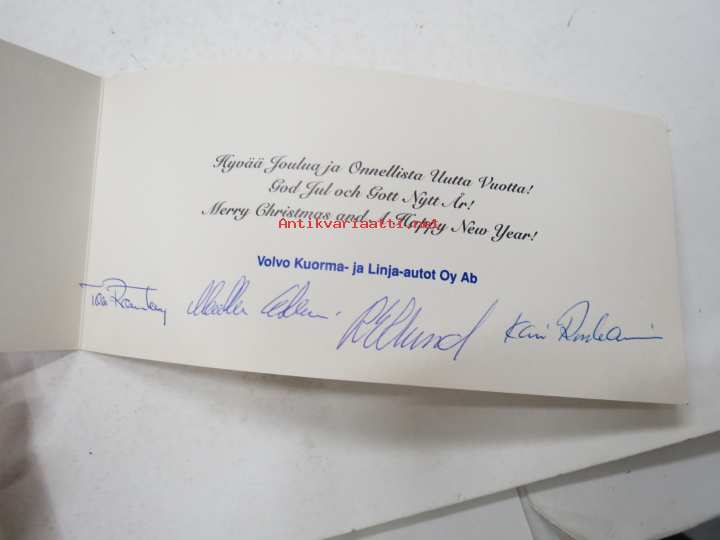 Hyvää Joulua ja Onnellista Uutta Vuotta!
God Jul och Gott Nytt År!
Merry Christmas and A Happy New Year!
Antikvariaatti.net
Volvo Kuorma- ja Linja-autot Oy Ab
Kari